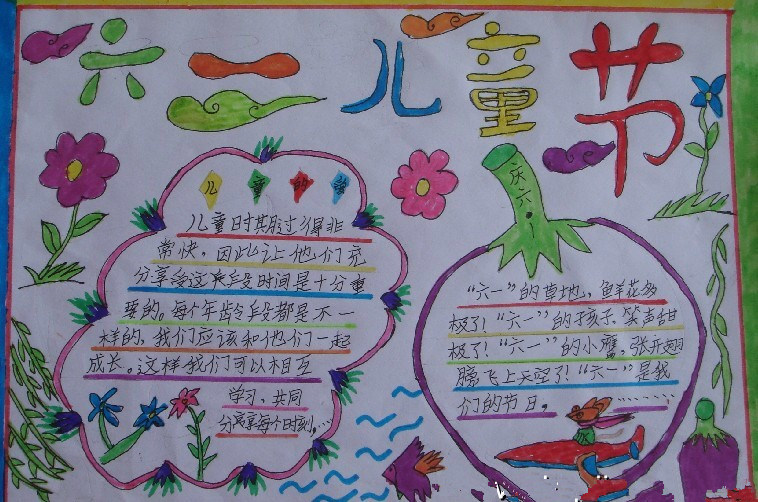 六一儿童节
儿童的
儿童时期过得非
常快。因此让他们充
分享受这段时间是十分重
要的。每个年龄段都是不一
样的，我们应该和他们一起
成长。这样我们可以相互
学习、共同
分享每个时刻，…
庆六一
“六一”的草地，鲜花多
极了！“六一”的孩子、笑声甜
极了！“六一”的小鹰，张开翅
膀飞上天空了！“六一”是我
们的节日。………